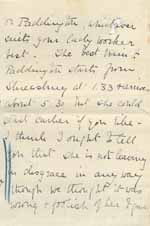 or Paddington, whichever
suits your Lady worker
best. The best train to
Paddington starts from
Shrewsbury at 1.33 arrives
about 5.30 but she could
start earlier if you like -
I think I ought to tell
you that she is not leaving
in disgrace in any way
though we thought it was
wrong & foolish of her I gave